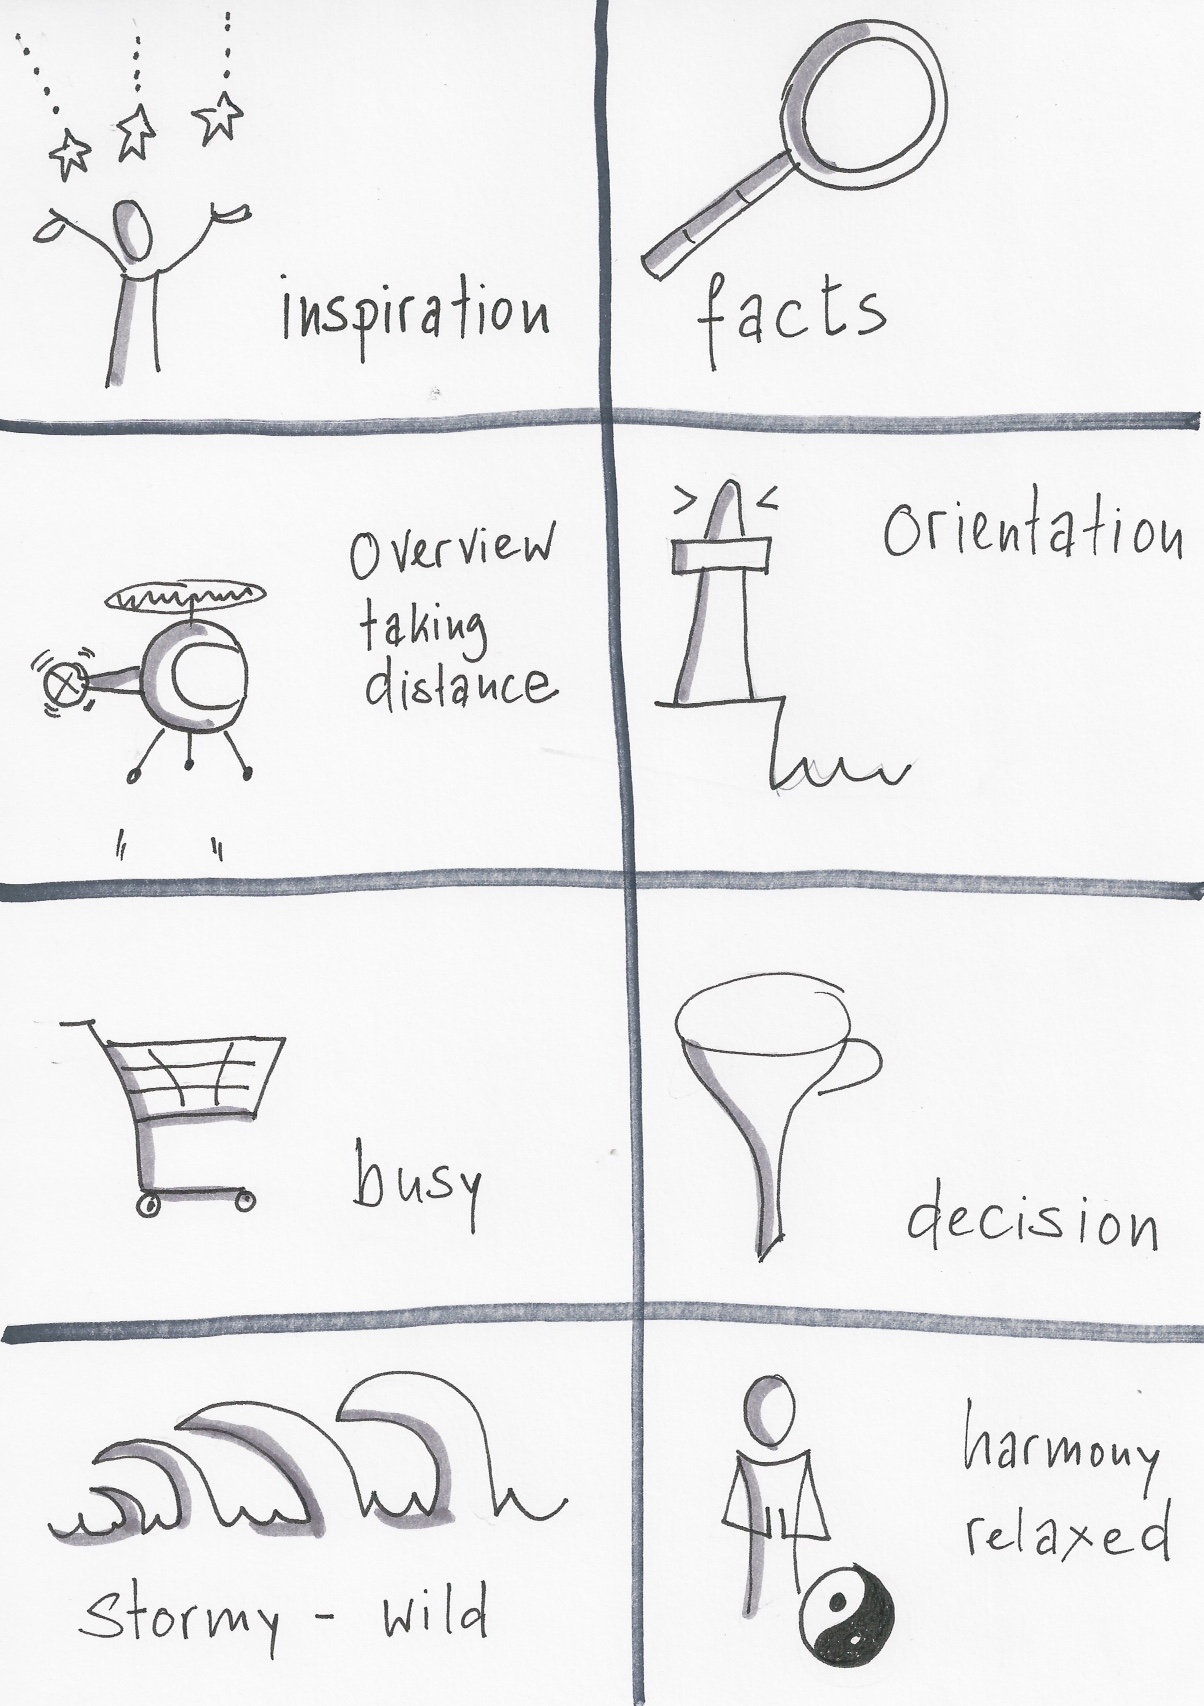 inspiration
facts
Overview
taking
distance
Orientation
busy
decision
Stormy - wild
harmony
relaxed